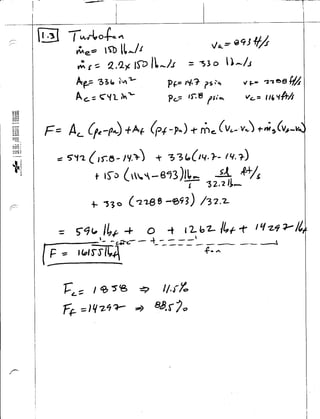 1.3 Turbofan
ṁe = 150 lbm/s Va = 893 ft/s
ṁs = 2.2 × 150 lbm/s = 330 lbm/s
Af = 336 in² Pf = 14.7 psia vs = 2288 ft/s
Ac = 542 in² Pc = 15.8 psia Vc = 1164 ft/s
F = Ac (Pc-Pa) + Af (Pf-Pa) + ṁe (Vc-Va) + ṁs (Vs-Va)
= 542 (15.8-14.7) + 336 (14.7-14.7)
+ 150 (1164-893) lbm/s sl/32.2 lbm ft/s
+ 330 (2288-893) /32.2
= 596 lbf + 0 + 1262 lbf + 14297 lbf
F = 16155 lbf
Fc = 1858 ⇒ 11.5%
Ff = 14297 ⇒ 88.5%